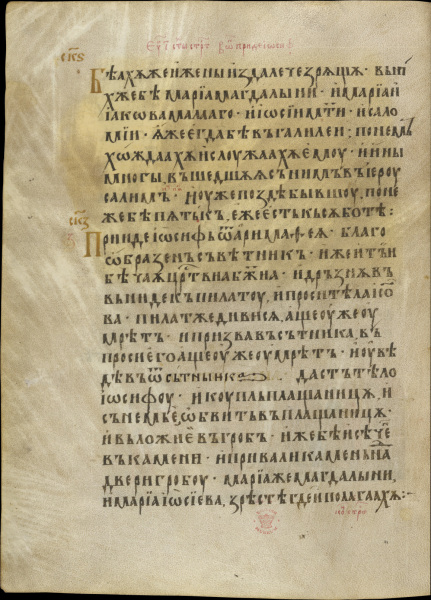 скѕ
Бѣахѫ же и жены издалече зрѧщѧ · въ ни
хже бѣ марїа магдалыни · и марїа и
іакѡва малаго · и іѡсїи мт҃и · и сало
мїи · ѧже егда бѣ въ галилеи · по немъ
хѡждаахѫ и слоужаахѫ емоу · и ины
многы въшедшѧѧ съ нимъ въ іероу
салимъ · и оуже поздѣ бывшоу, поне
же бѣ пѧтъкъ, еже есть къ сѫботѣ :
скз
Прїиде іѡсифь ѿ арїмаѳеѧ · благо
ѡбразенъ съвѣтникъ · иже и тъи
бѣ чаѧ црⷭ҇тва бж҃їа · и дръзнѫвъ
въниде къ пилатоу, и проси тѣла іс҃о
ва · пилат же дивисѧ, аще оуже оу
мрѣтъ · и призвавъ сътника, въ
проси его аще оуже оумрѣтъ · и оувѣ
дѣвъ ѿ сътника дастъ тѣло
іѡсифоу · и коупль плащаницѫ, и
сънемь е, ѡбвитъ въ плащаницѫ
и въложи е въ гробъ · иже бѣ исѣче
въ камени · и привали камень на
двери гробоу · марїа же магдалыни,
и марїа іѡсїева, зрѣстѣ где и полагаахѫ :~